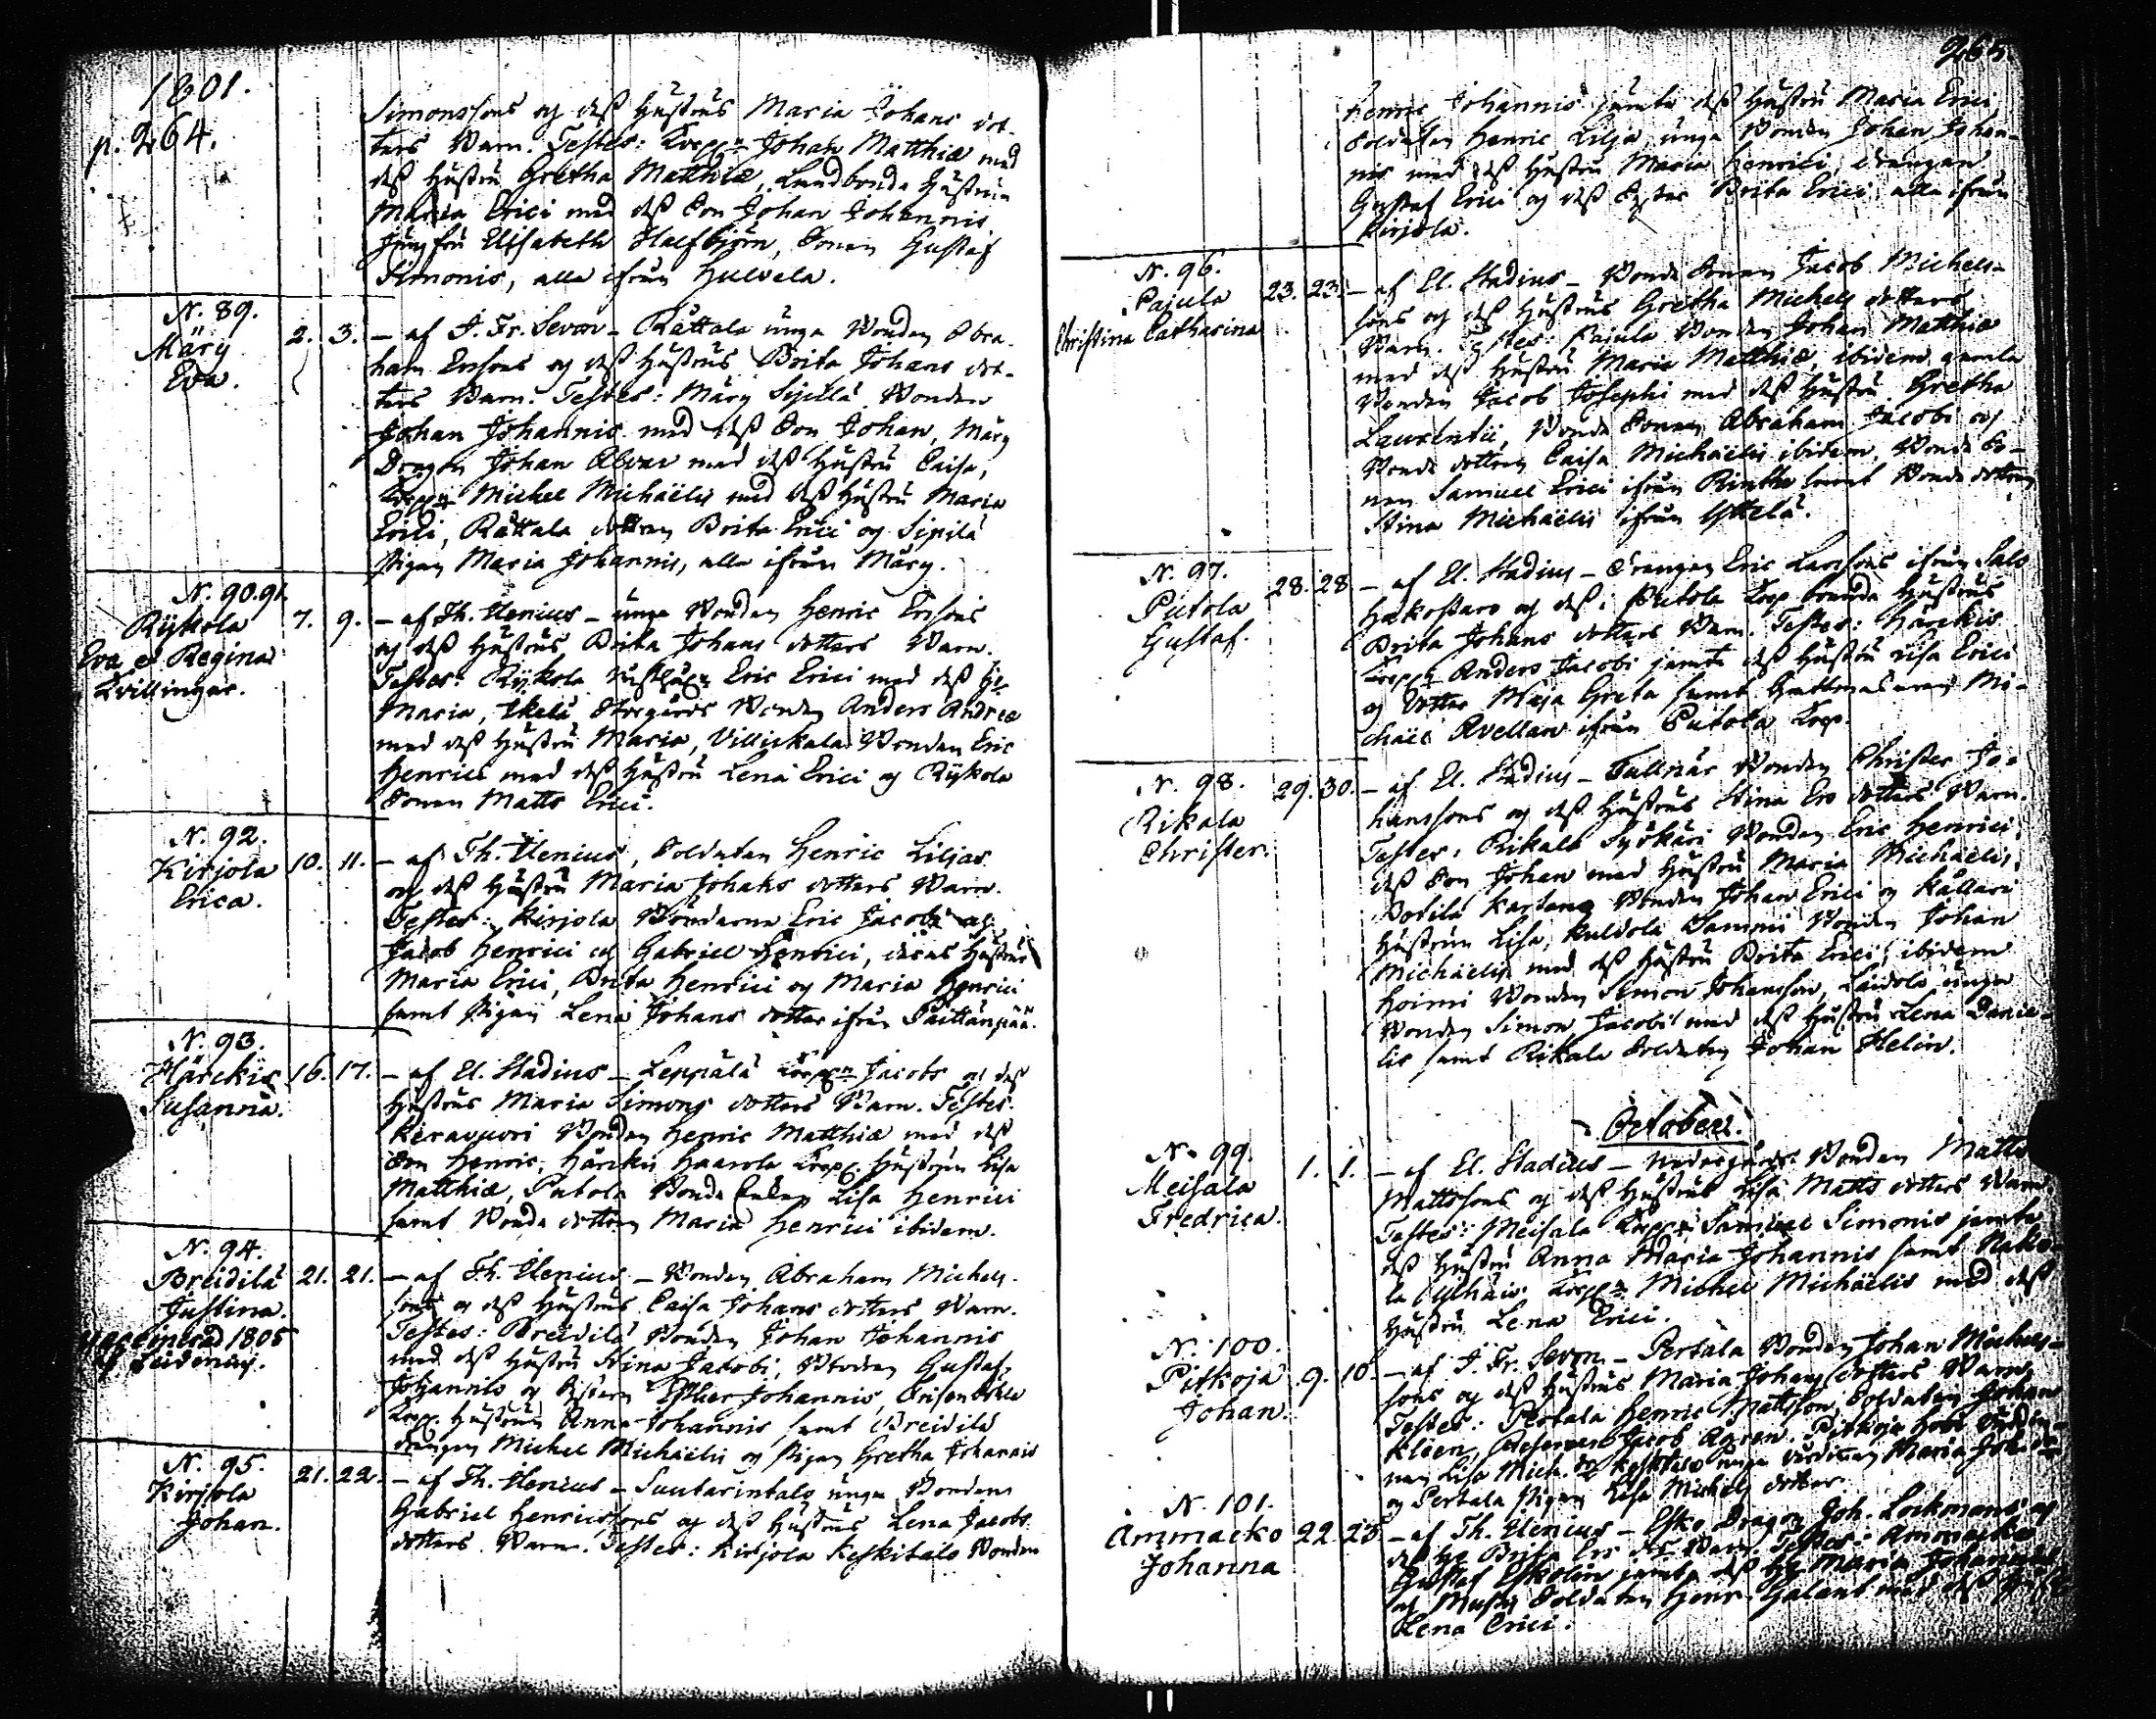 1801.
p. 264.
Simonssons og dess Hustrus Maria Johans dot-
ters Barn. Testes: Johan Matthiæ med
dess Hustru Gretha Matthiæ, Landbonde Hustrun
Maria Erici med dess Son Johan Johannis
Jungfru Elisabeth Halfbjörn, Sonen Gustaf
Simonis, alla ifrån Hulvela.
N. 89.
Märy
Eva.
2. 3. – af J. Fr. Sevon – Rättala unga Bonden Abra-
ham Ersons og dess Hustrus Brita Johans dot-
ters Barn. Testes: Märy Sipilä Bonden
Johan Johannis med dess Son Johan, Märy
Dragon Johan Alvar med dess Hustru Caisa,
Michel Michaëlis med dess Hustru Maria
Erici, Rättala dottren Brita Erici og Sipilä
Pigan Maria Johannis, alla ifrån Märy.
N. 90. 91.
Rykola
Eva et Regina
Tvillingar.
7. 9. – af Th. Ilenius – unga Bonden Henric Ersons
og dess Hustrus Brita Johans dotters Barn.
Testes: Rykola Eric Erici med dess
Maria, Storgårds Bonden Anders Andreæ
med dess Hustru Maria, Villickala Bonden Eric
Henrici med dess Hustru Lena Erici og Rykola
Sonen Matts Erici.
N. 92.
Kirjola
Erica.
10. 11. – af Th. Ilenius, Soldaten Henric Liljas
og dess Hustru Maria Johans dotters Barn.
Testes: Kirjola Bönderne Eric Jacobi
Jacob Henrici og Gabriel Henrici, deras Hustrur
Maria Erici, Brita Henrici og Maria Henrici
samt Pigan Lena Johans dotter ifrån
N. 93.
Härckis
Susanna.
16. 17. – af El. Stadius – Leppälä Jacobs og dess
Hustrus Maria Simons dotters Barn. Testes:
Keravuori Bonden Henric Matthiæ med dess
Son Henric, Härckis Haarola Hustrun Lisa
Matthiæ, Putola Bonde Enkan Lisa Henrici
samt Bonde dottren Maria Henrici ibidem.
N. 94.
Breidilä
Justina.
1805
21. 21. – af Th. Ilenius – Bonden Abraham Michels-
sons og dess Hustrus Caisa Johans dotters Barn.
Testes: Breidilä Bonden Johan Johannis
med dess Hustru Stina Jacobi, Gustaf
Johannis og Systern Esther Johannis,
Hustrun Anna Johannis samt Breidilä
drengen Michel Michaëlis og Pigan Gretha Johannis
N. 95.
Kirjola
Johan.
21. 22. – af Th. Ilenius – Suutarintalo unga Bonden
Gabriel Henricssons og dess Hustrus Lena Jacobs
dotters Barn. Testes: Kirjola Keskitalo Bonden
265.
Henric Johannis jämte dess Hustru Maria Erici
Soldaten Henric Lilja, unga Bonden Johan Johan-
nis med dess Hustru Maria Henrici, drengen
Gustaf Erici og dess Syster Brita Erici, alla ifrån
Kirjola.
N. 96.
Pajula
Christina Catharina
23. 23. – af El. Stadius – Bonde Sonen Jacob Michels-
sons og dess Hustrus Gretha Michels dotters
Barn. Testes: Pajula Bonden Johan Matthiæ
med dess Hustru Maria Matthiæ, ibidem gamla
Bonden Jacob Josephi med dess Hustru Gretha
Laurentii, Bonde Sonen Abraham Jacobi og
Bonde dottren Caisa Michaëlis ibidem, Bonde So-
nen Samuel Erici ifrån samt Bonde dottren
Stina Michaëlis ifrån Yttelä.
N. 97.
Putola
Gustaf.
28. 28. – af El. Stadius – Drengen Eric Larssons ifrån Salo
og dess i Putola Torp boende Hustrus
Brita Johans dotters Barn. Testes: Härckis
Anders Jacobi jämte dess Hustru Lisa Erici
og dotter Maja Greta samt Mi-
chaël Avellan ifrån Putola Torp.
N. 98.
Rikala
Christer.
29. 30. – af El. Stadius – Tullnär Bonden Christer Jo-
hanssons og dess Hustrus Stina Ers dotters Barn.
Testes: Rikala Bonden Eric Henrici,
dess Son Johan med Hustru Maria Michaëlis,
Bonden Johan Erici og
Hustrun Lisa, Kuldola Sammi Bonden Johan
Michaëlis med dess Hustru Brita Erici, ibidem
Bonden Simon Johansson, unga
Bonden Simon Jacobi med dess Hustru Lena Danie-
lis samt Rikala Soldaten Johan Helin.
October.
N. 99.
Meisala
Fredrica.
1. 1. – af El. Stadius – Nedergårds Bonden Matts
Mattssons og dess Hustrus Lisa Matts dotters Barn.
Testes: Meisala Samuel Simonis jämte
dess Hustru Anna Maria Johannis samt
Michel Michaëlis med dess
Hustru Lena Erici.
N. 100.
Pitkoja
Johan.
9. 10. – af J. Fr. Sevon – Pertala Bonden Johan Michels-
sons og dess Hustrus Maria Johans dotters Barn.
Testes: Pertala Henric Mattsson, Soldaten Johan
Jacob Pitkoja
Lisa Maria
og Pertala Pigan Lisa Michels dotter.
N. 101.
Ammacko
Johanna
22. 25. – af Th. Ilenius – Esko Dragon Joh. Lockmans og
dess Brita Ers Barn. Testes: Ammacko
Gustaf Eskolin jämte dess Maria Johannis
og Soldaten Henr. Galant med dess
Lena Erici.